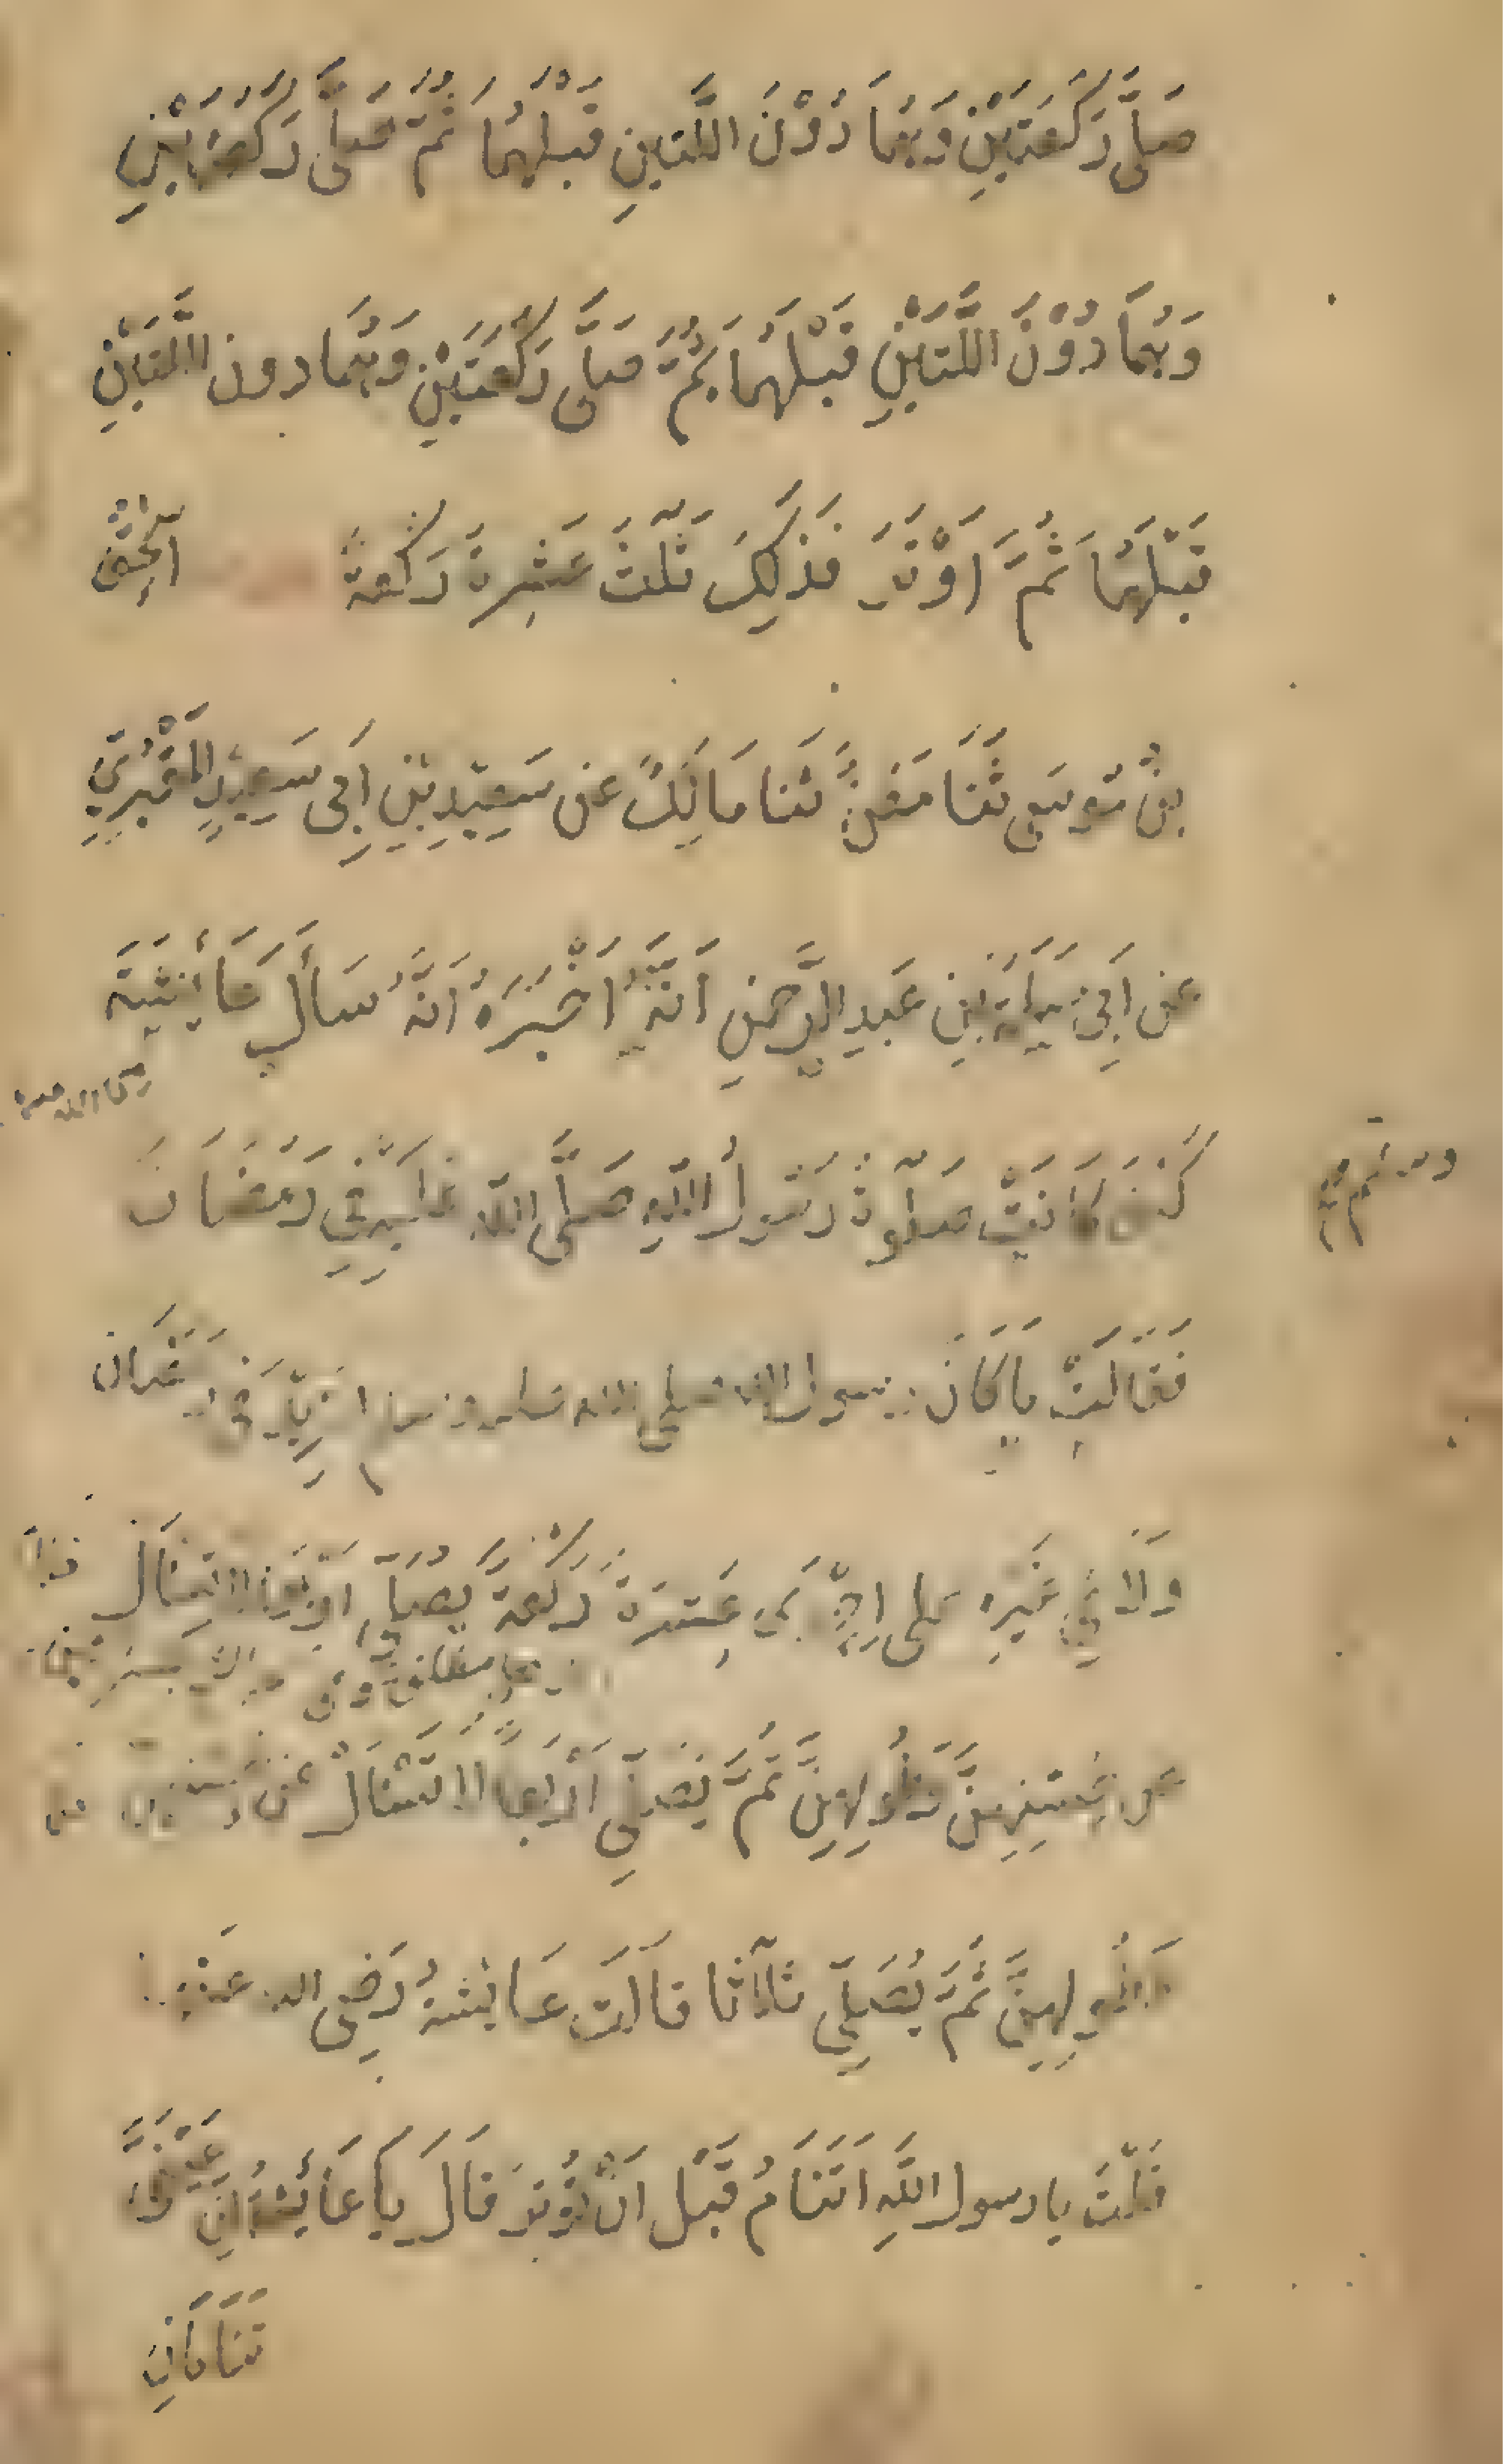 صَلَّى رَكْعَتَيْنِ وَهُمَا دُوْنَ اللَّتَيْنِ قَبْلَهُمَا ثُمَّ صَلَّى رَكْعَتَيْنِ
وَهُمَا دُوْنَ اللَّتَيْنِ قَبْلَهُمَا ثُمَّ صَلَّى رَكْعَتَيْنِ وَهُمَا دون اللَّتَيْنِ
قَبْلَهُمَا ثُمَّ اَوْتَرَ فَذٰلِكَ ثَلٰثَ عَشِرَةَ رَكْعَةً اسْحٰقُ
بْنُ مُوسَى ثَنَا مَعْنٌ ثَنَا مَالِكٌ عن سَعِيْدِ بْنِ اَبِى سَعِيْدٍ الْمَقْبُرِيِّ
عن اَبِيْ سَلَمَةَ بْنِ عَبدِ الرَّحْمٰنِ اَنَّهُ اَخْبَرَهُ اَنَّهُ سَأَلَ عَائِشَةَ
رضى الله عنها
كَيْفَ كَانَتْ صَلٰوةُ رَسُولِ اللّٰهِ صَلَّى اللّٰه عَلَيْهِ فِي رَمَضَانَ
وسلم
فَقَالَتْ مَا كَانَ رسول الله صلى الله عليه وسلم لِيَزِيْدَ فى رمَضَانَ
وَلَا فِي غَيْرِهِ على اِحْدٰى عَشِرَةَ رَكْعَةً يُصَلِّي اَرْبَعًا لا تَسْأَلْ
عن حُسْنِهِنَّ وَطُولِهِنَّ ثُمَّ يُصَلِّي اَرْبَعًا لا تَسْأَلْ عَنْ حُسْنِهِنَّ
وَطُولِهِنَّ ثُمَّ يُصَلِّي ثَلَاثًا قَالَت عَايِشَةُ رَضِيَ الله عنها
قُلْتُ يا رسول اللّٰهِ اَتَنَامُ قَبْلَ اَنْ تُوْتِرَ قَالَ يَا عَائِشَةُ اِنَّ عَيْنَيَّ
تَنَامَانِ